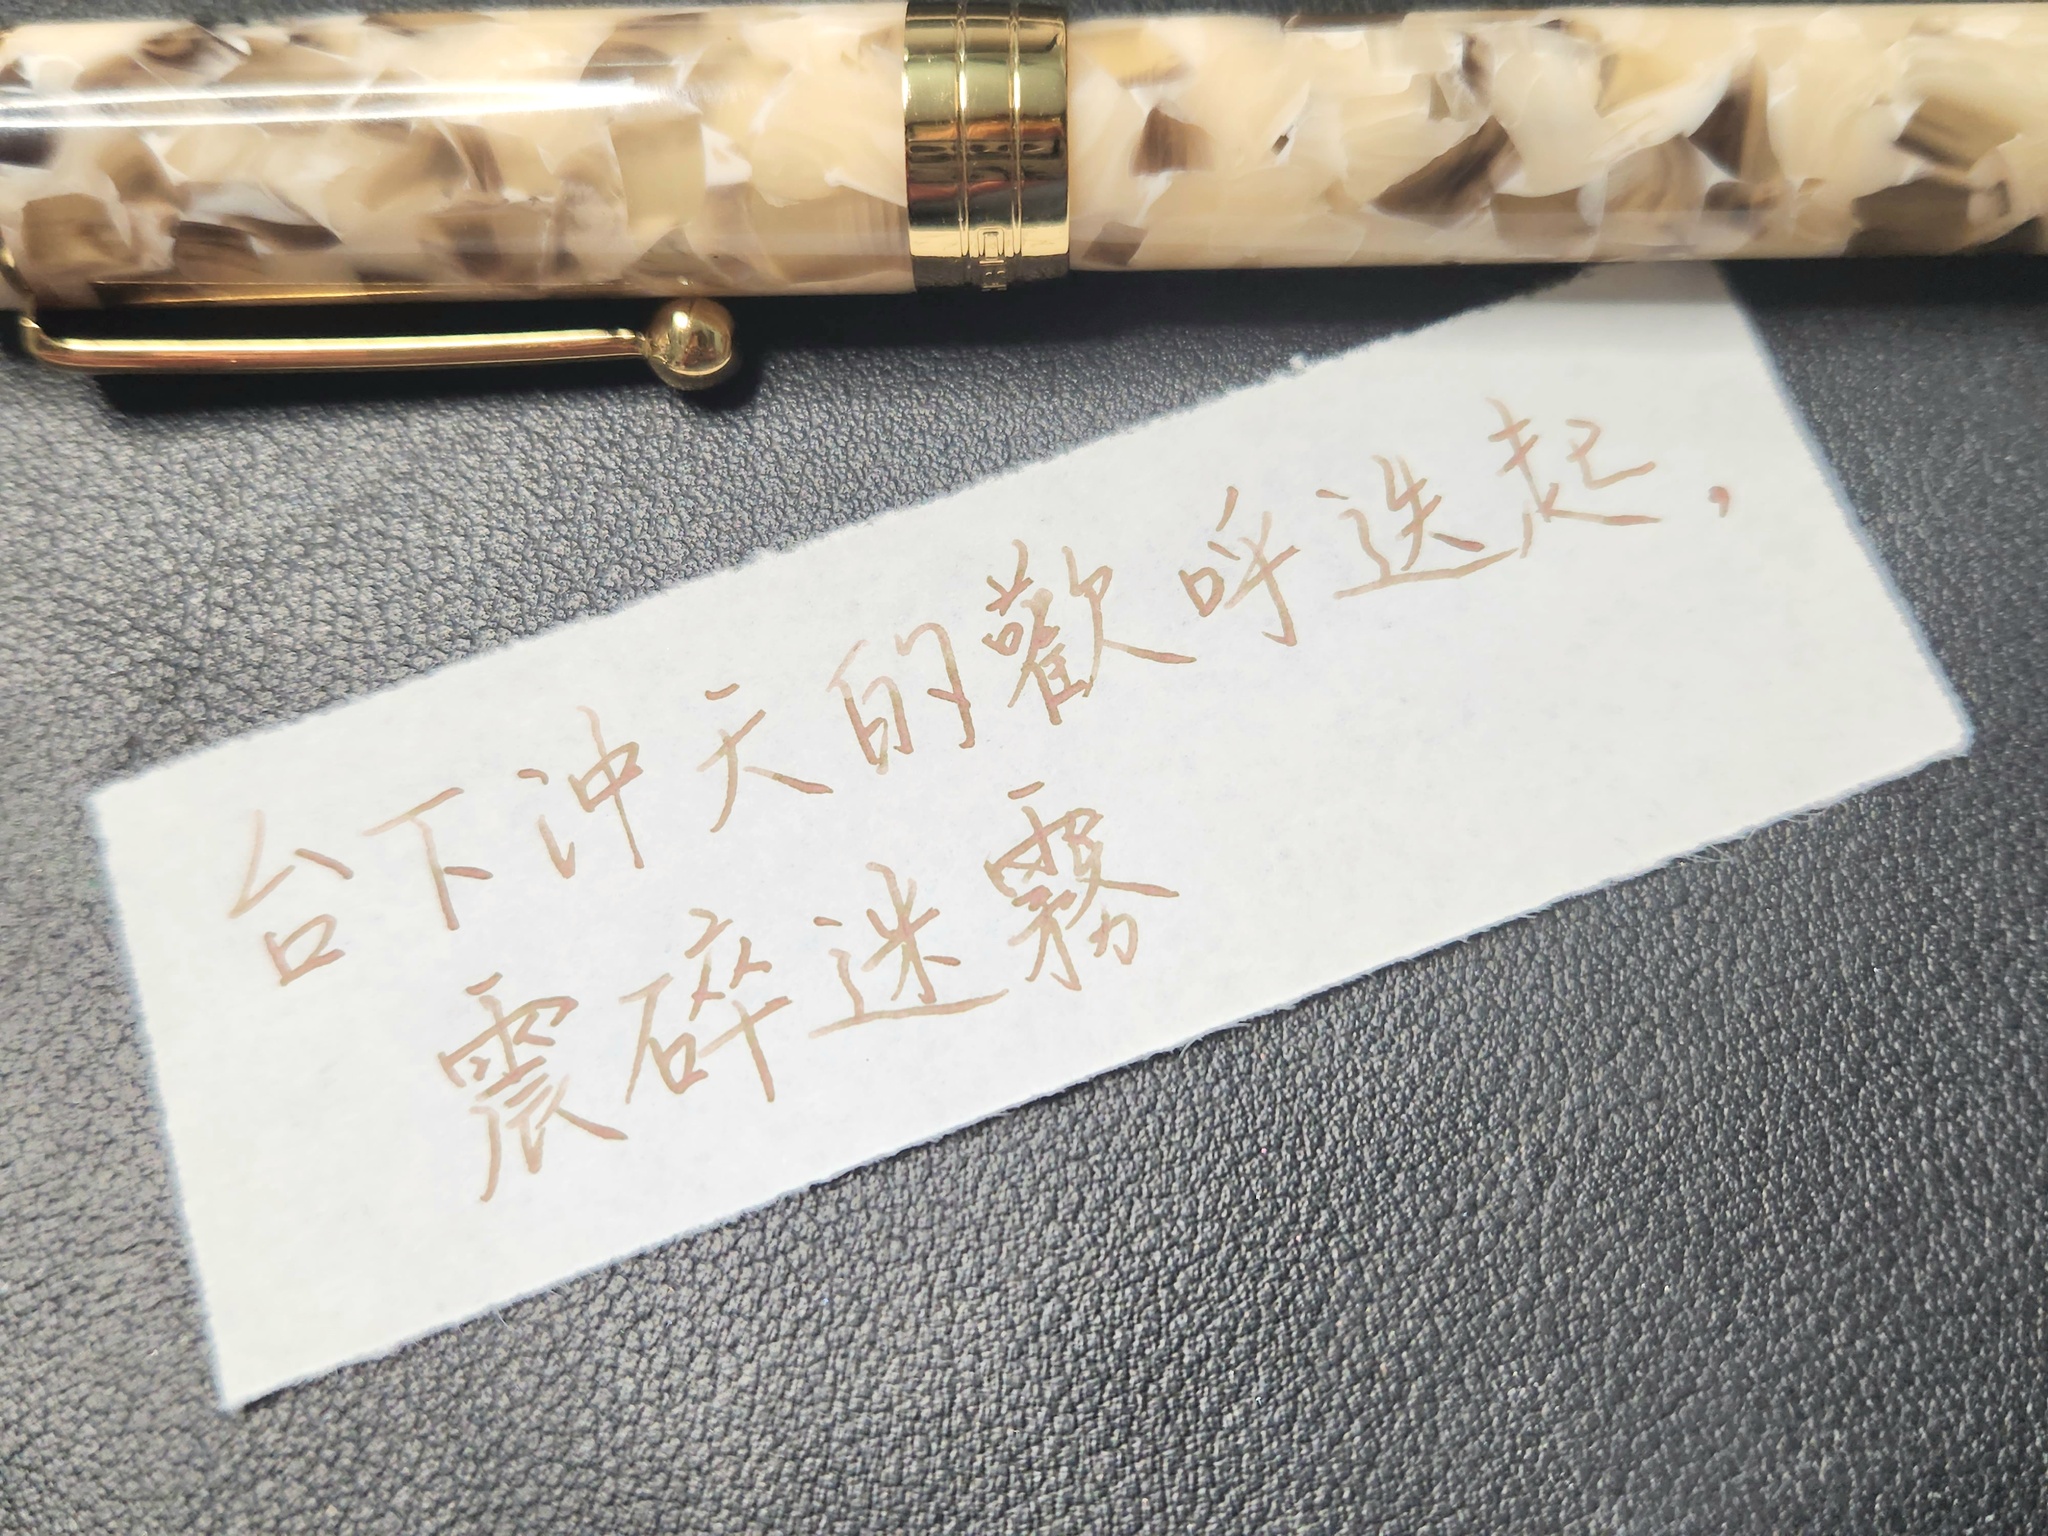 台下沖天的歡呼迭起，
震碎迷霧